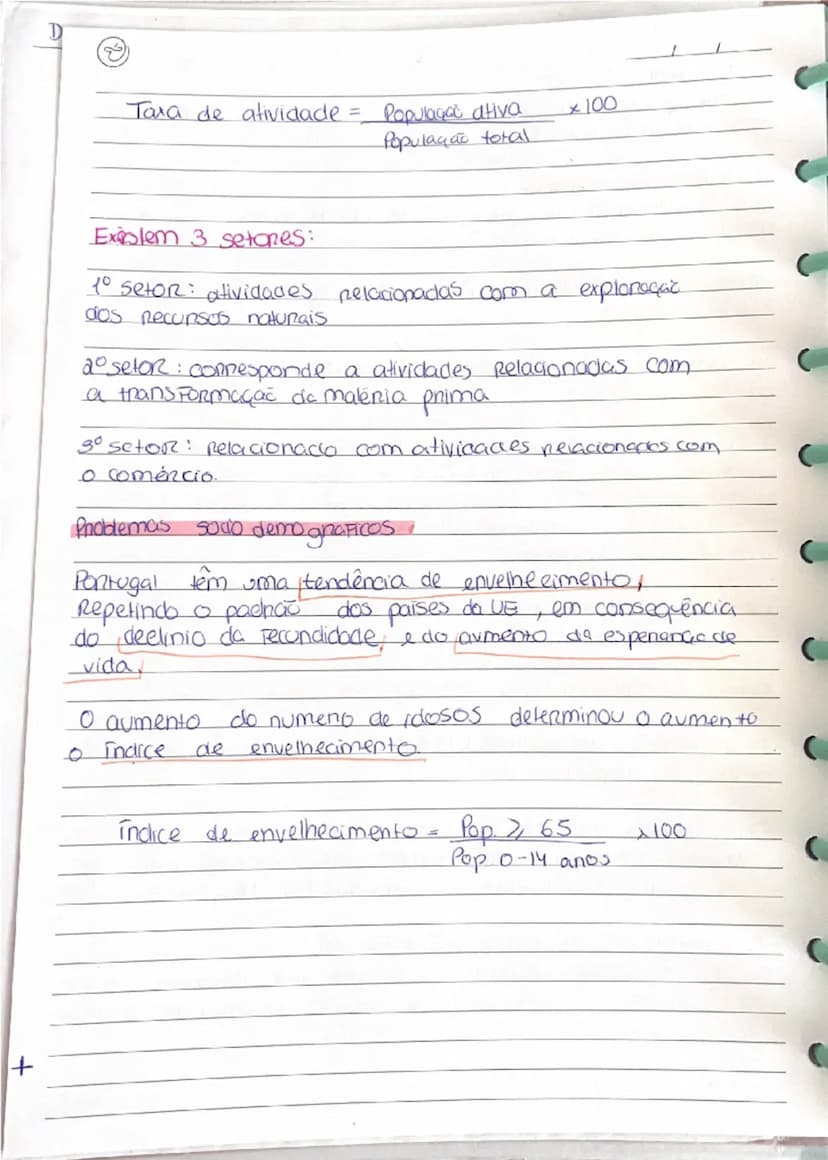 D
Taxa de atividade = População ativa x100
População total
Existem 3 setores:
1º setor: atividades relacionadas com a exploração
dos recursos naturais
2º setor: corresponde a atividades relacionadas com
a transformação da matéria prima
3º setor: relacionado com atividades relacionados com
o comércio.
Problemas socio demográficos
Portugal têm uma tendência de envelhecimento,
Repetindo o padrão dos países da UE, em consequência
do declínio da fecundidade, e do aumento da esperança de
vida,
O aumento do numero de idosos determinou o aumento
o índice de envelhecimento.
índice de envelhecimento = Pop. ≥ 65 x100
Pop 0-14 anos
+